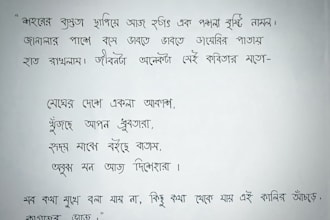 "শহরের ব্যস্ততা ছাপিয়ে আজ হঠাৎ এক পশলা বৃষ্টি নামল।
জানালার পাশে বসে ভাবতে ভাবতে ডায়েরির পাতায়
হাত রাখলাম। জীবনটা অনেকটা সেই কবিতার মতো-
মেঘের দেশে একলা আকাশ,
খুঁজছে আপন ধ্রুবতারা,
হৃদয় মাঝে বইছে বাতাস,
অবুঝ মন আজ দিশেহারা।
সব কথা মুখে বলা যায় না, কিছু কথা থেকে যায় এই কালির আঁচড়ে,
কাগজের ভাঁজে।"